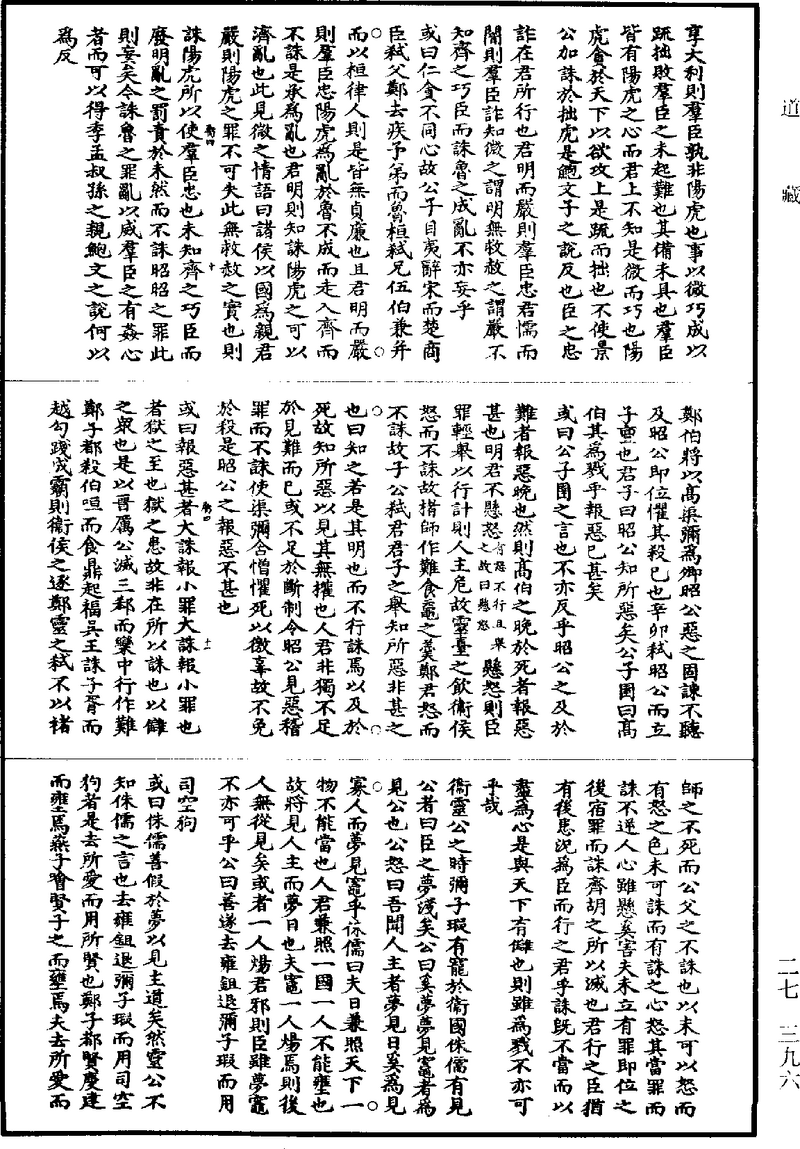 道藏
享大利則羣臣孰非陽虎也事以微巧成以
疏拙敗羣臣之未起難也其備未具也羣臣
皆有陽虎之心而君上不知是微而巧也陽
虎貪於天下以欲攻上是疏而拙也不使景
公加誅於拙虎是鮑文子之說反也臣之忠
詐在君所行也君明而嚴則羣臣忠君懦而
闇則羣臣詐知微之謂明無救赦之謂嚴不
知齊之巧臣而誅魯之成亂不亦妄乎
或曰仁貪不同心故公子目夷辭宋而楚商
臣弒父鄭去疾予弟而魯桓弒兄伍伯兼并
而以桓律人則是皆無貞廉也且君明而嚴
則羣臣忠陽虎爲亂於魯不成而走入齊而
不誅是承爲亂也君明則知誅陽虎之可以
濟亂也此見微之情語曰諸侯以國爲親君
嚴則陽虎之罪不可失此無救赦之實也則
誅陽虎所以使羣臣忠也未知齊之巧臣而
廢明亂之罰責於未然而不誅昭昭之罪此
則妄矣今誅魯之罪亂以威羣臣之有姦心
者而可以得季孟叔孫之親鮑文之說何以
爲反
鄭伯將以高渠彌爲卿昭公惡之固諫不聽
及昭公即位懼其殺已也辛卯弒昭公而立
子亶也君子曰昭公知所惡矣公子圉曰高
伯其爲戮乎報惡已甚矣
或曰公子圉之言也不亦反乎昭公之及於
難者報惡晚也然則高伯之晚於死者報惡
甚也明君不懸怒有怒不行且舉之故曰懸怒懸怒則臣
罪輕舉以行計則人主危故靈臺之飲衛侯
怒而不誅故褚師作難食黿之羹鄭君怒而
不誅故子公弒君君子之舉知所惡非甚之
也曰知之若是其明也而不行誅焉以及於
死故知所惡以見其無權也人君非獨不足
於見難而已或不足於斷制今昭公見惡稽
罪而不誅使渠彌含憎懼死以徼幸故不免
於殺是昭公之報惡不甚也
或曰報惡甚者大誅報小罪大誅報小罪也
者獄之至也獄之患故非在所以誅也以讎
之衆也是以晉厲公滅三郄而欒中行作難
鄭子都殺伯咺而食鼎起福吳王誅子胥而
越勾踐成霸則衛侯之逐鄭靈之弒不以褚
師之不死而公父之不誅也以未可以怒而
有怒之色未可誅而有誅之心怒其當罪而
誅不逆人心雖懸奚害夫未立有罪即位之
後宿罪而誅齊胡之所以滅也君行之臣猶
有後患況爲臣而行之君乎誅旣不當而以
盡爲心是與天下有讎也則雖爲戮不亦可
乎哉
衛靈公之時彌子瑕有寵於衛國侏儒有見
公者曰臣之夢淺矣公曰奚夢夢見竈者爲
見公也公怒曰吾聞人主者夢見日奚爲見
寡人而夢見竈乎侏儒曰夫日兼照天下一
物不能當也人君兼照一國一人不能壅也
故將見人主而夢日也夫竈一人煬焉則後
人無從見矣或者一人煬君邪則臣雖夢竈
不亦可乎公曰善遂去雍鉏退彌子瑕而用
司空狗
或曰侏儒善假於夢以見主道矣然靈公不
知侏儒之言也去雍鉏退彌子瑕而用司空
狗者是去所愛而用所賢也鄭子都賢慶建
而壅焉燕子噲賢子之而壅焉夫去所愛而
二七 三九六